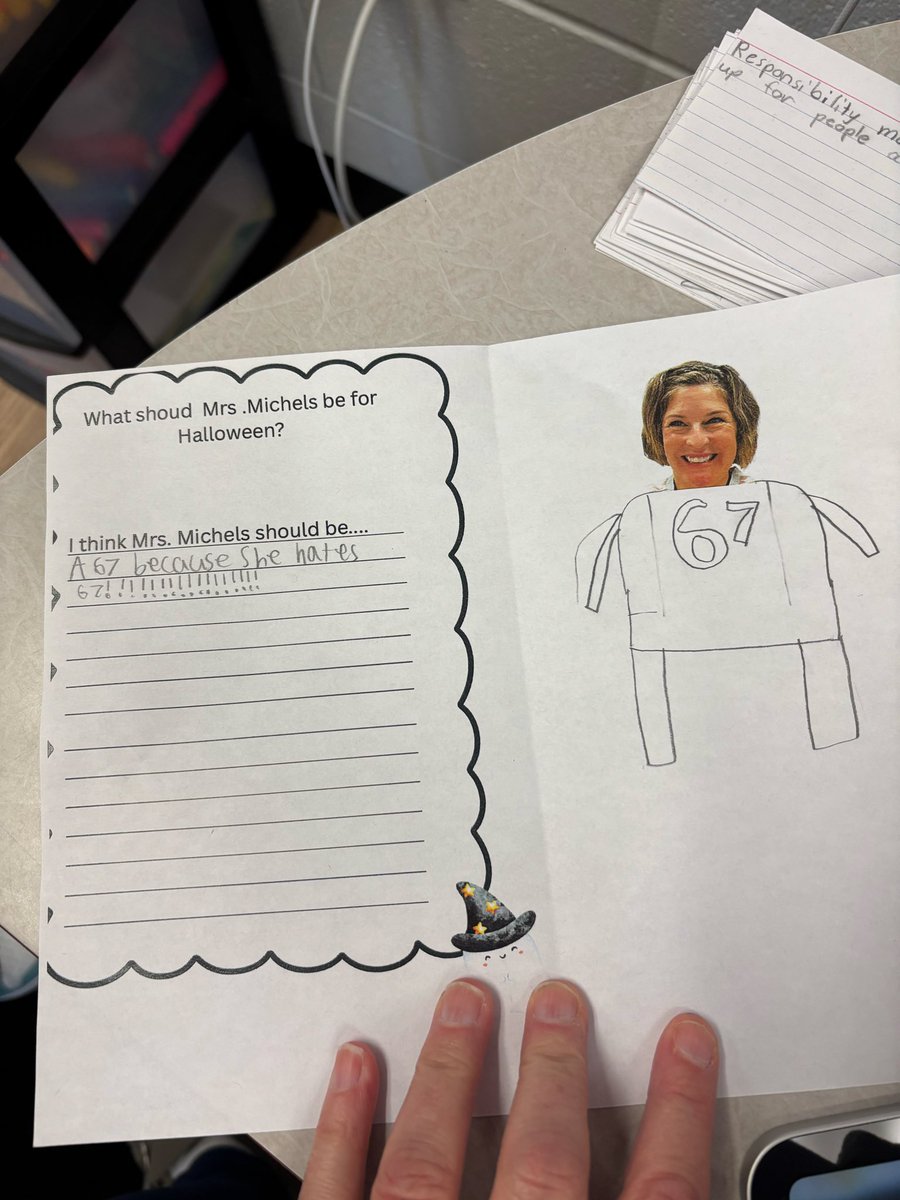 Responsibility
up for people
What shoud Mrs .Michels be for
Halloween?
I think Mrs. Michels should be....
A 67 because she hates
67!!!!!!!!!!!!!!!!!!
67